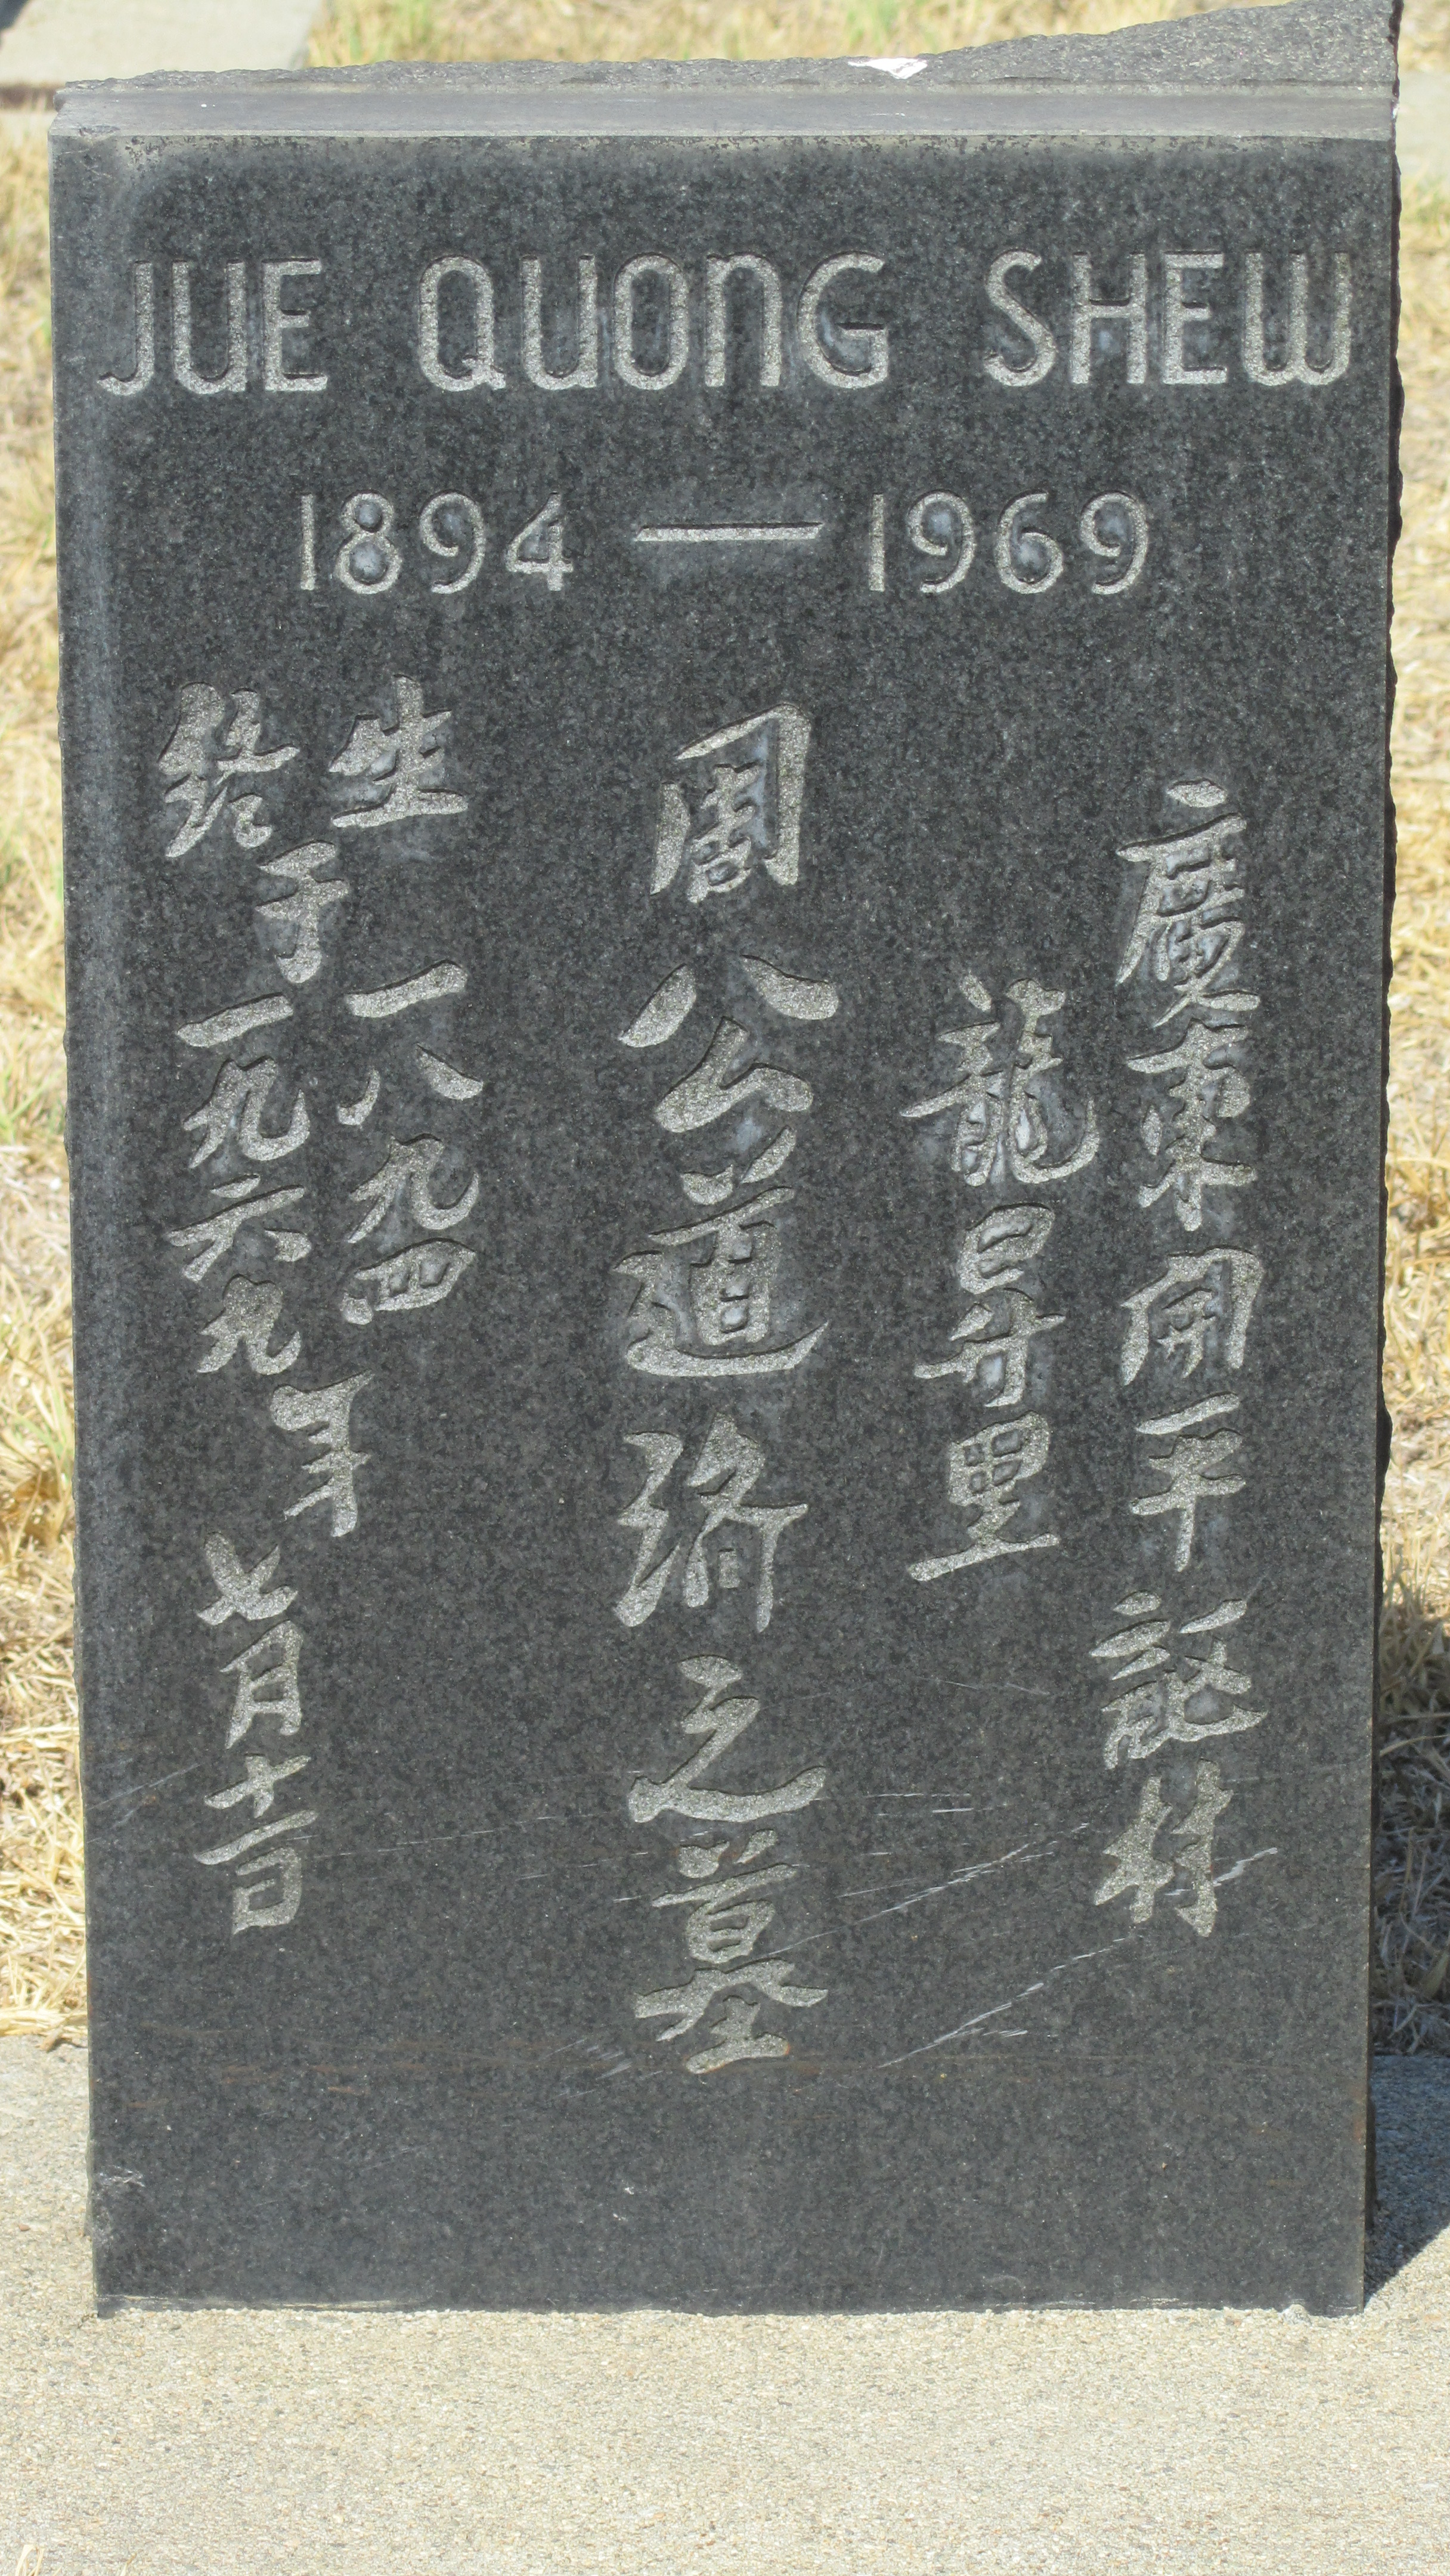 JUE QUONG SHEW
1894 — 1969
廣東開平 林
龍昇里
周公道濟之墓
生 一八九四
終于一九六九年七月十 日